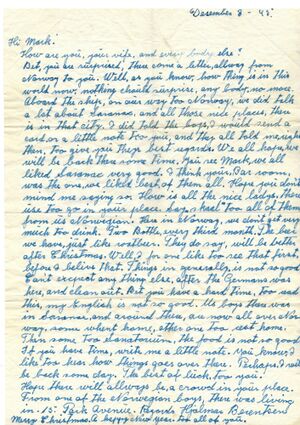 Desember 8 - 45.
Hi Mark!
How are you, your wife, and every body else?
Bet, you are surprised, there come a letter, allway from
Norway to you. Well, as you know, how thing is in this
world now, nothing should surprise, any body, no more.
Aboard the ship, on our way too Norway, we did talk
a lot about Saranac, and all those nice places, there
is in that city. I did told the boys, I would send a
card, or a little note too you, and they all told me, right
then, too give you their best regards. We all hope, we
will be back there some time. You see Mark, we all
liked Saranac very good. I think your Bar room,
was the one, we liked best of them all. Hope you don't
mind me saying so. How is all the nice ladys, there
use too go in your place. Say, hello too all of them
from its Norwegian. Here in Norway, we don't get very
much too drink. Two Bottle, every third month. The beer
we have, just like water. They do say, will be better
after Christmas. Well, I for one like too see that first,
before I believe that. Things in generally, is not so good.
Can't expect any thing else, after the Germans was
here, and clean out. But you have a hard time, too read
this, my English is not so good. Us boys there was
in Saranac, and around there, are now all over Nor-
way, some where home, other one too rest home.
Then some too Sanatorium, the food is not so good.
If you have time, write me a little note. You know I
like too hear how things goes over there. Perhaps, I will
be back some day. The best of luck, too you.
Hope there will allways be, a crowd in your place.
From one of the Norwegian boys, there was living
in. 15. Park Avenue. Regards Hjalmar Berentsen
Merry Christmas, & happy new year, too all of you.